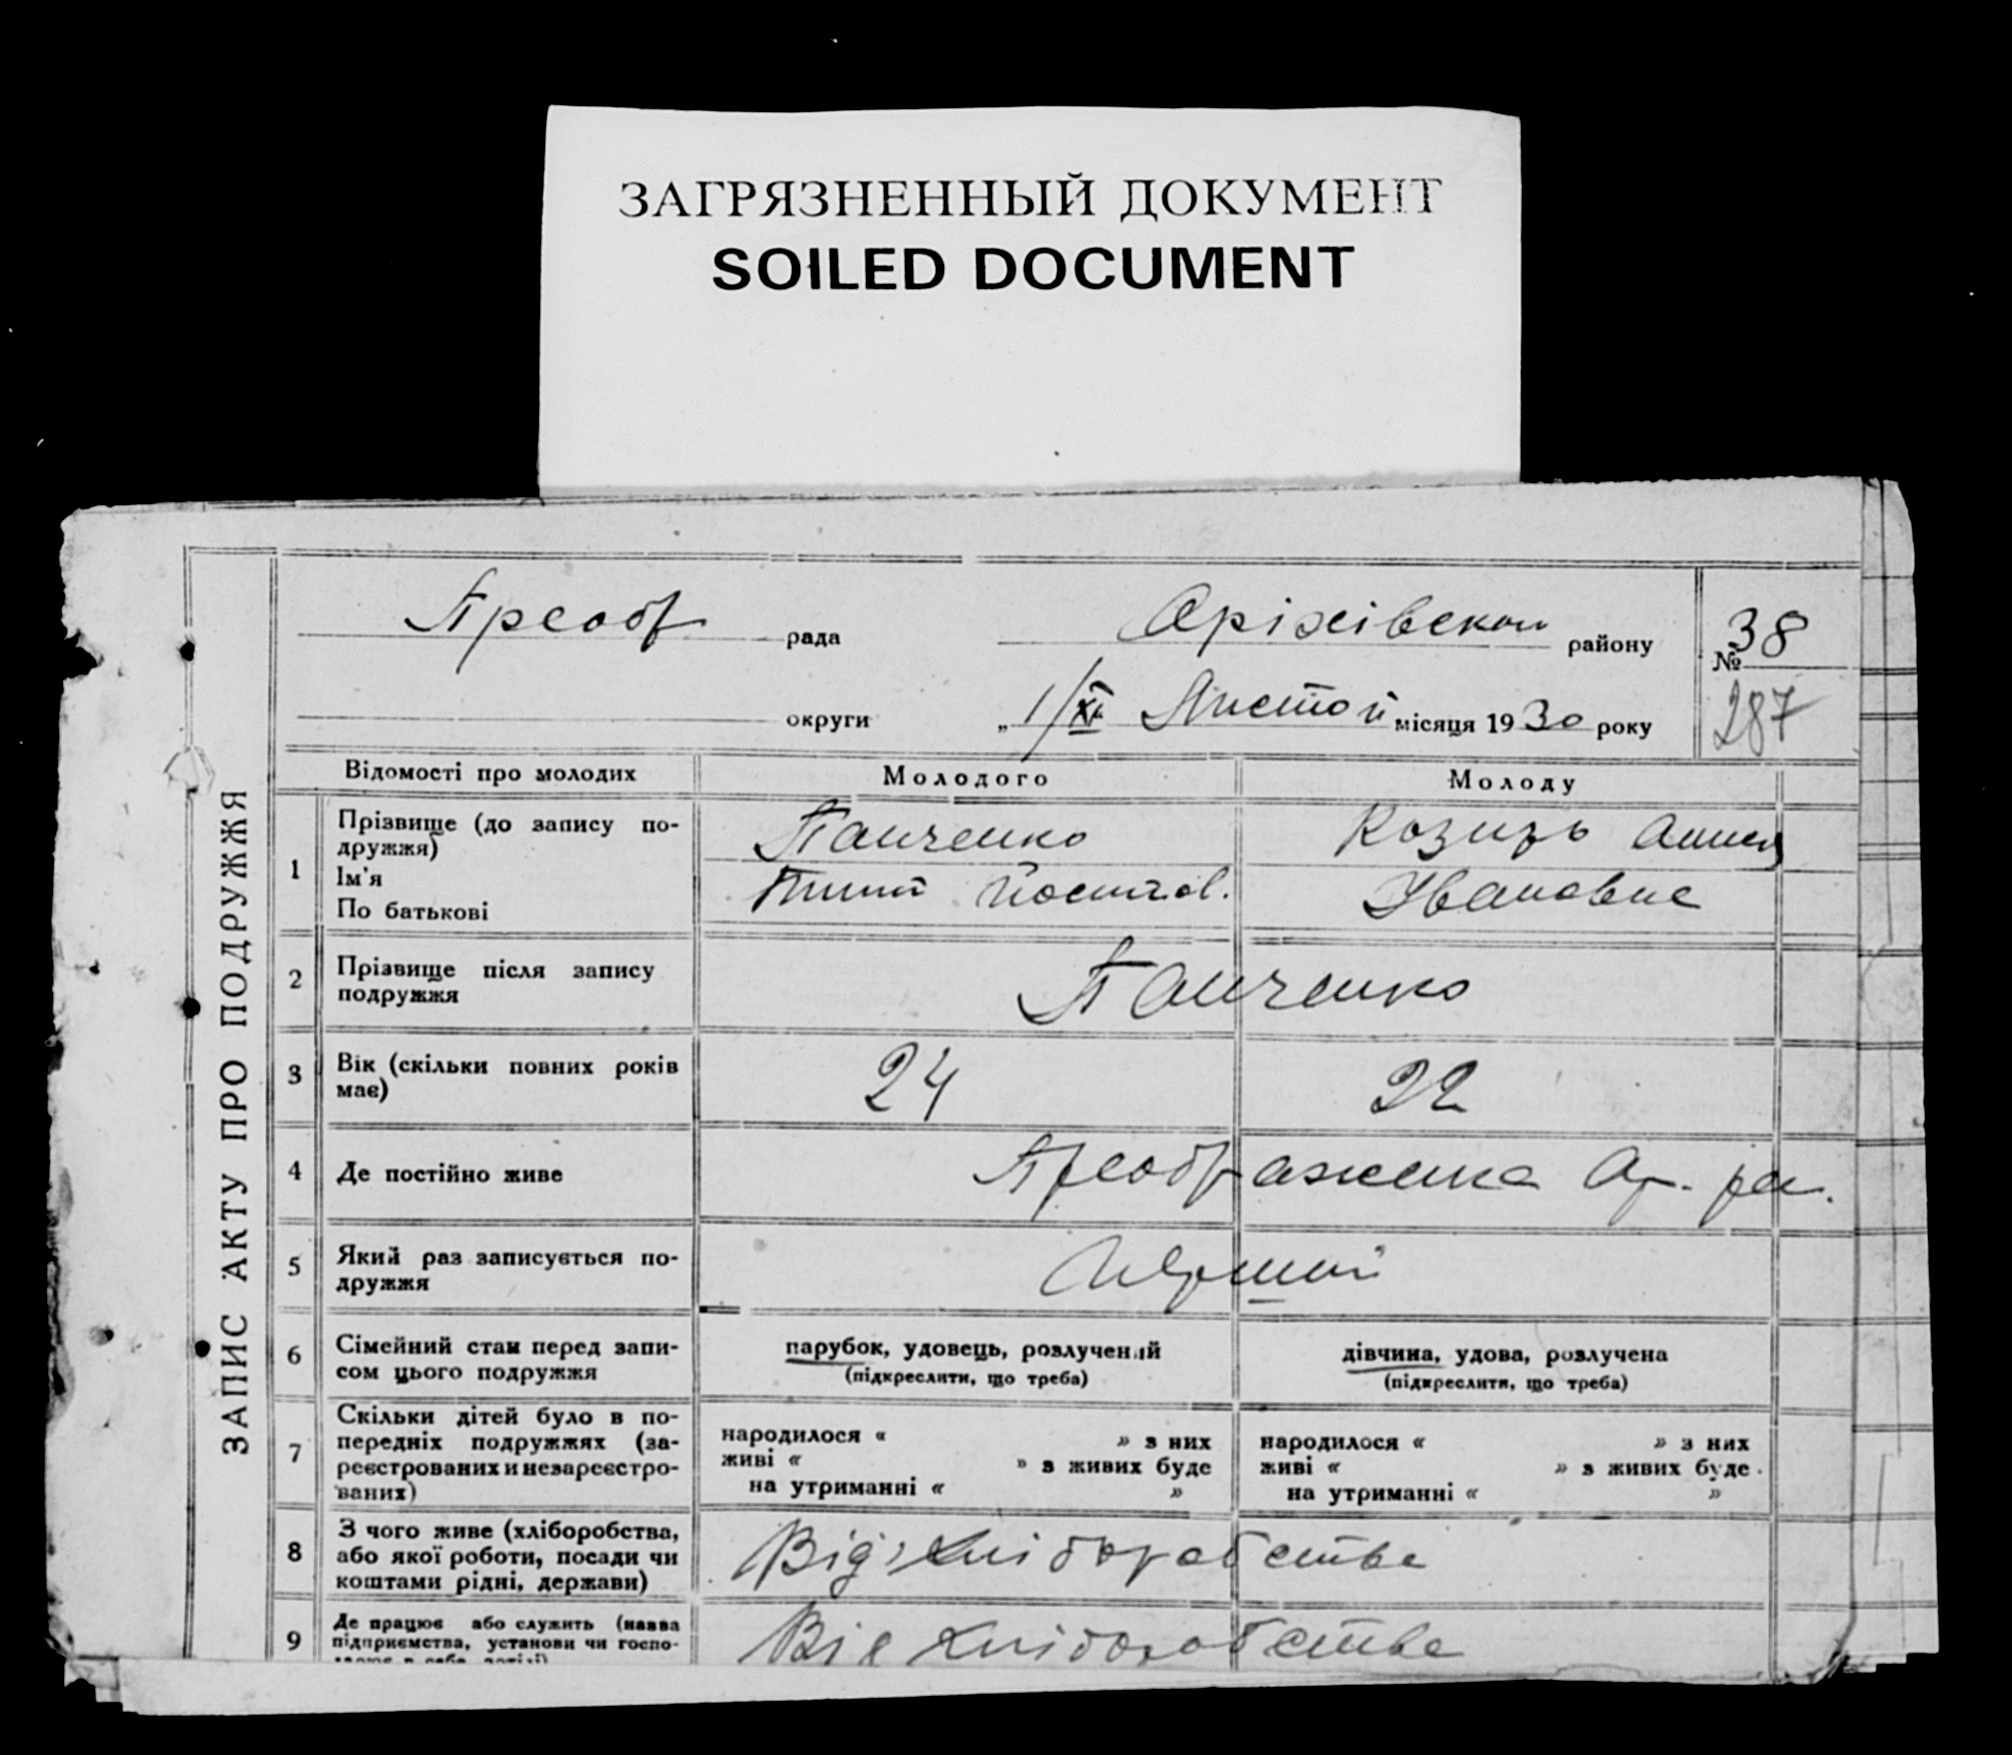 ЗАГРЯЗНЕННЫЙ ДОКУМЕНТ
SOILED DOCUMENT
ЗАПИС АКТУ ПРО ПОДРУЖЖЯ
Преобр рада Оріхівськой району № 38
округи „1/XI Листой місяця 1930 року 287
Відомості про молодих Молодого Молоду
1 Прізвище (до запису по-
дружжя)
Ім'я
По батькові
Панченко
Козирь Анна
Ивановна
2 Прізвище після запису
подружжя
Панченко
3 Вік (скільки повних років
має)
24 22
4 Де постійно живе
Преображенка Ор. ра.
5 Який раз записується по-
дружжя
Первший
6 Сімейний стан перед запи-
сом цього подружжя
парубок, удовець, розлучений
(підкреслити, що треба)
дівчина, удова, розлучена
(підкреслити, що треба)
7 Скільки дітей було в по-
передніх подружжях (за-
реєстрованих и незареєстро-
ваних)
народилося « » з них
живі « » з живих буде
на утриманні « »
народилося « » з них
живі « » з живих буде
на утриманні « »
8 З чого живе (хліборобства,
або якої роботи, посади чи
коштами рідні, держави)
Від хліборобства
9 Де працює або служить (назва
підприємства, установи чи госпо-
Від хліборобства